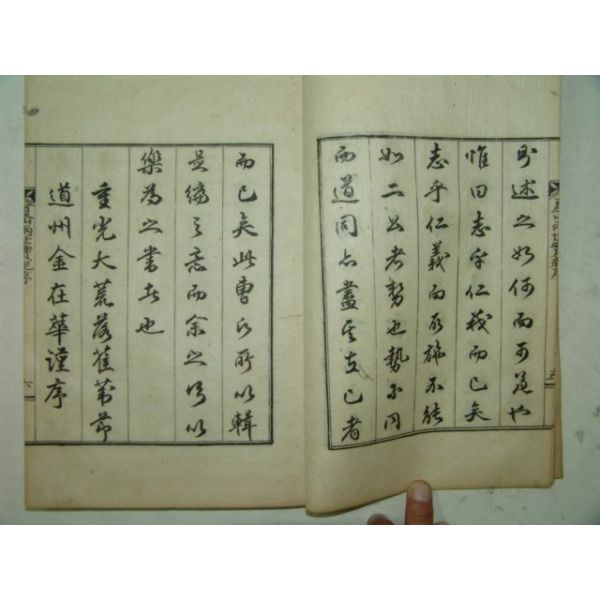 述之如何而可也
惟曰志乎仁義而已矣
志乎仁義而施不能
如二公者勢也勢不同
而道同亦盡其在已者
而已矣此曹氏所以輯
是編之意而余之所以
樂為之書者也
重光大荒落萑葦節
道州金在華謹序
兩世實紀序
六